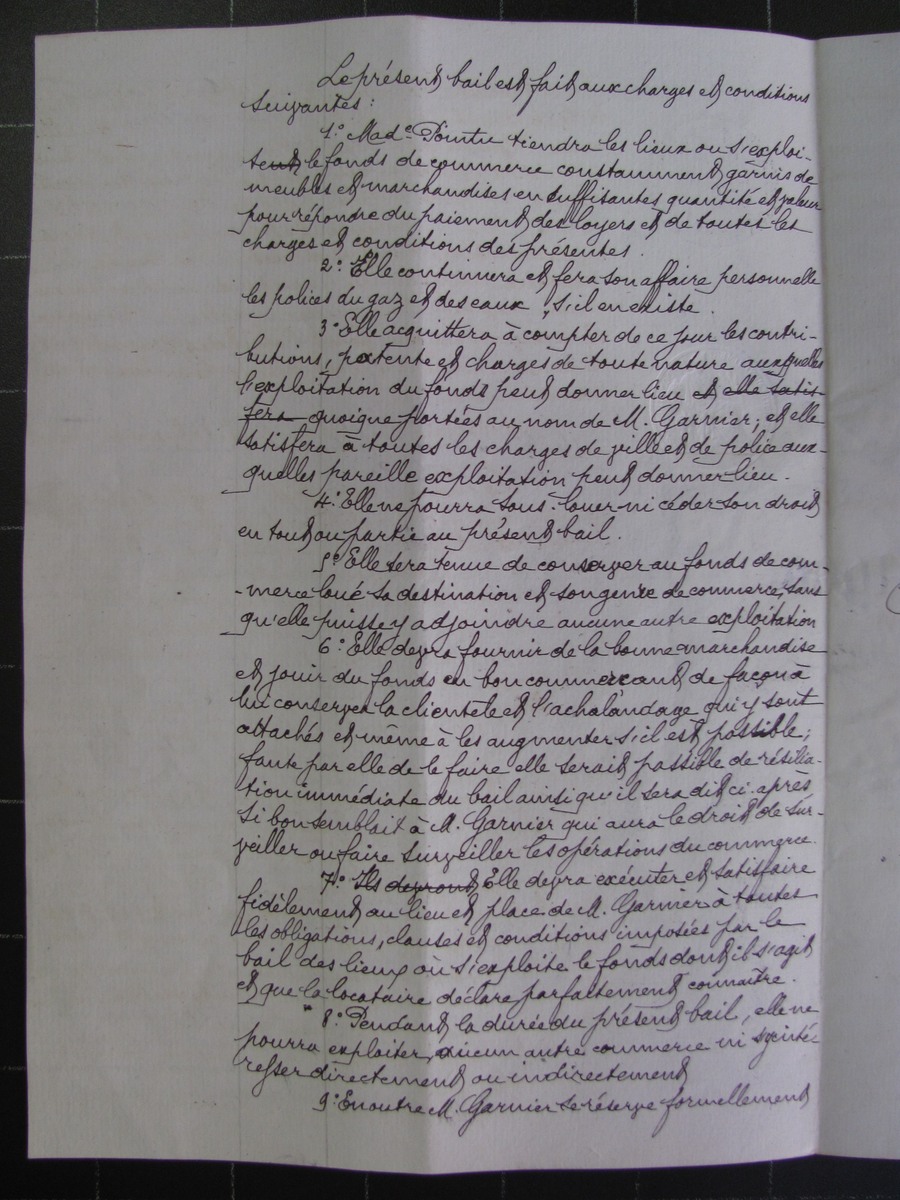 Le présent bail est fait aux charges et conditions
suivantes :
1° Made Pointu tiendra les lieux où s'exploi-
tent le fonds de commerce constamment garnis de
meubles et marchandises en suffisantes quantité et valeur
pour répondre du paiement des loyers et de toutes les
charges et conditions des présentes.
2° Elle continuera et fera son affaire personnelle
les polices du gaz et des eaux, s'il en existe.
3° Elle acquittera à compter de ce jour les contri-
butions, patente et charges de toute nature auxquelles
l'exploitation du fonds peut donner lieu et elle satis-
fera quoique portées au nom de M. Garnier, et elle
satisfera à toutes les charges de ville et de police aux-
quelles pareille exploitation peut donner lieu.
4° Elle ne pourra sous-louer ni céder son droit
en tout ou partie au présent bail.
5° Elle sera tenue de conserver au fonds de com-
-merce loué sa destination et son genre de commerce, sans
qu'elle puisse y adjoindre aucune autre exploitation
6° Elle devra fournir de la bonne marchandise
et jouir du fonds en bon commercant de façon à
lui conserver la clientele et l'achalandage qui y sont
attachés et même à les augmenter s'il est possible;
faute par elle de le faire elle serait passible de résilia-
tion immédiate du bail ainsi qu'il sera dit ci-après
si bon semblait à M. Garnier qui aura le droit de sur-
veiller ou faire surveiller les opérations du commerce.
7° Ils devront Elle devra exécuter et satisfaire
fidèlement au lieu et place de M. Garnier à toutes
les obligations, clauses et conditions imposées par le
bail des lieux où s'exploite le fonds dont il s'agit
et que la locataire déclare parfaitement connaître.
8° Pendant la durée du présent bail, elle ne
pourra exploiter aucun autre commerce ni s'y inté-
resser directement ou indirectement
9° En outre M. Garnier se réserve formellement